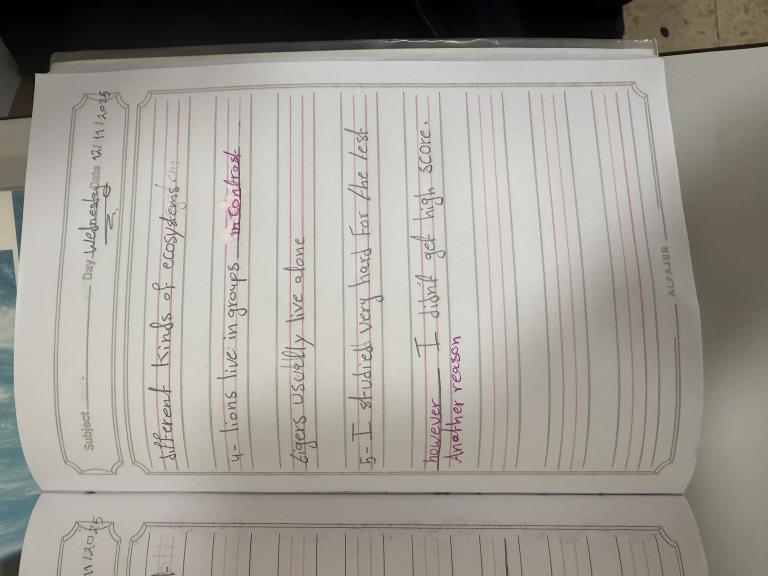 Subject Day Wefnesday Date 12/11/2025
different kinds of ecosystems.
4- lions live in groups in contrast
tigers usually live alone
5- I studied very hard for the test
however I didn't get high score.
Another reason
ALFAJER
11/2025